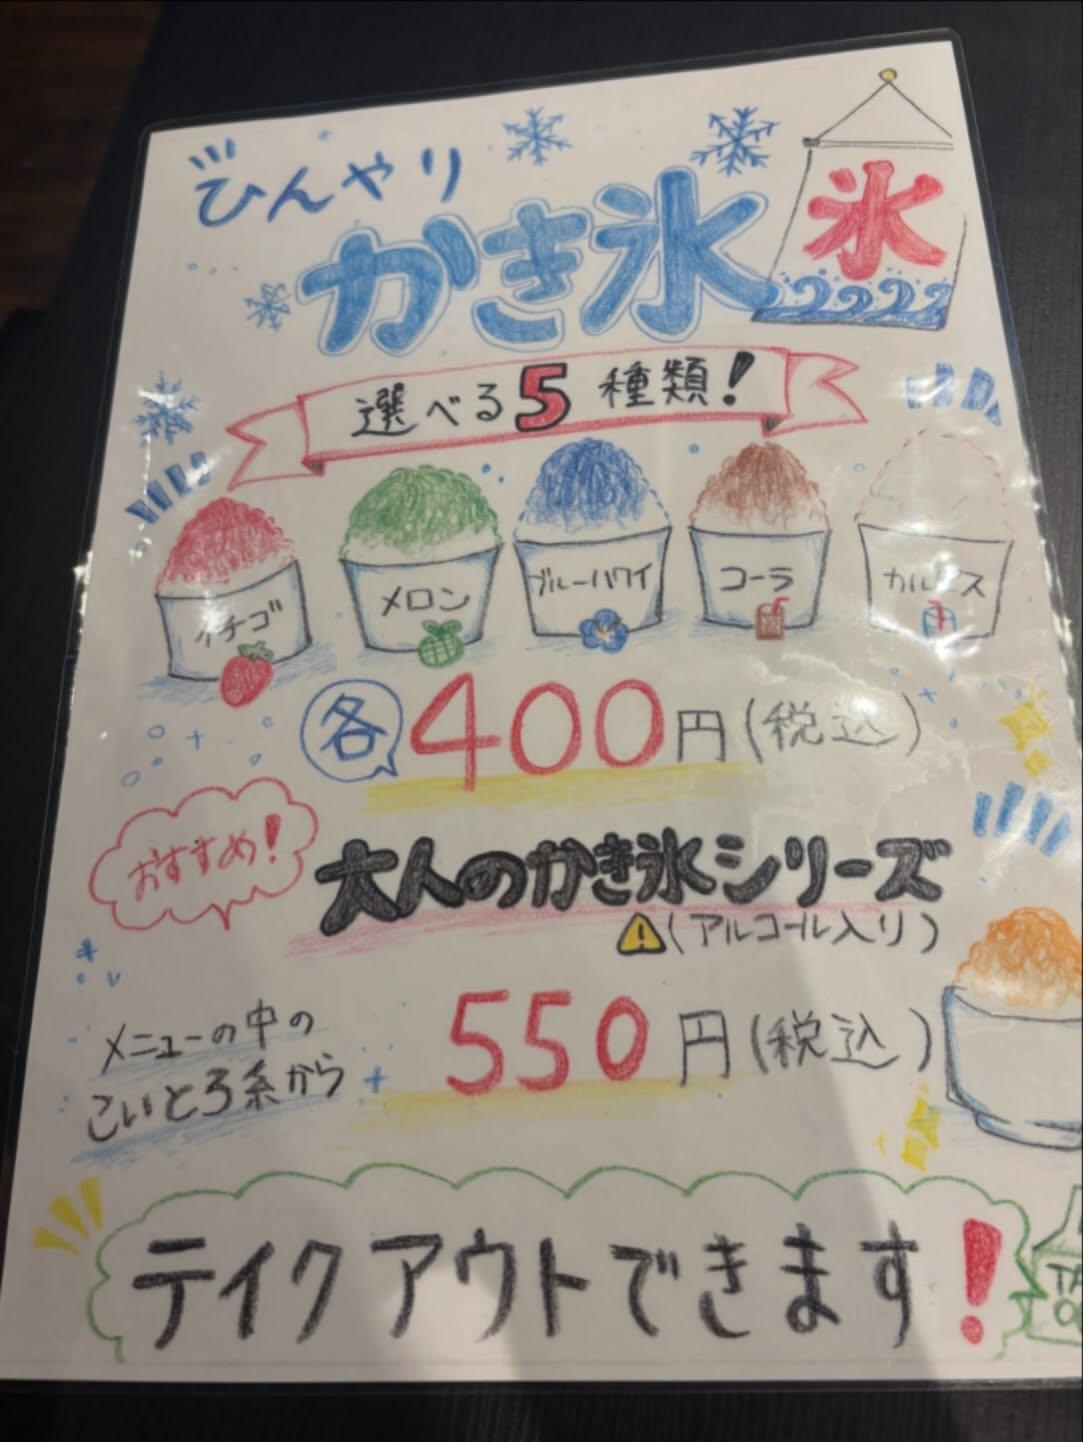 ひんやり
かき氷
氷
選べる5種類!
イチゴ
メロン
ブルーハワイ
コーラ
カルピス
各400円(税込)
おすすめ!
大人のかき氷シリーズ
(アルコール入り)
メニューの中の
こいとろ系から
550円(税込)
テイクアウトできます!